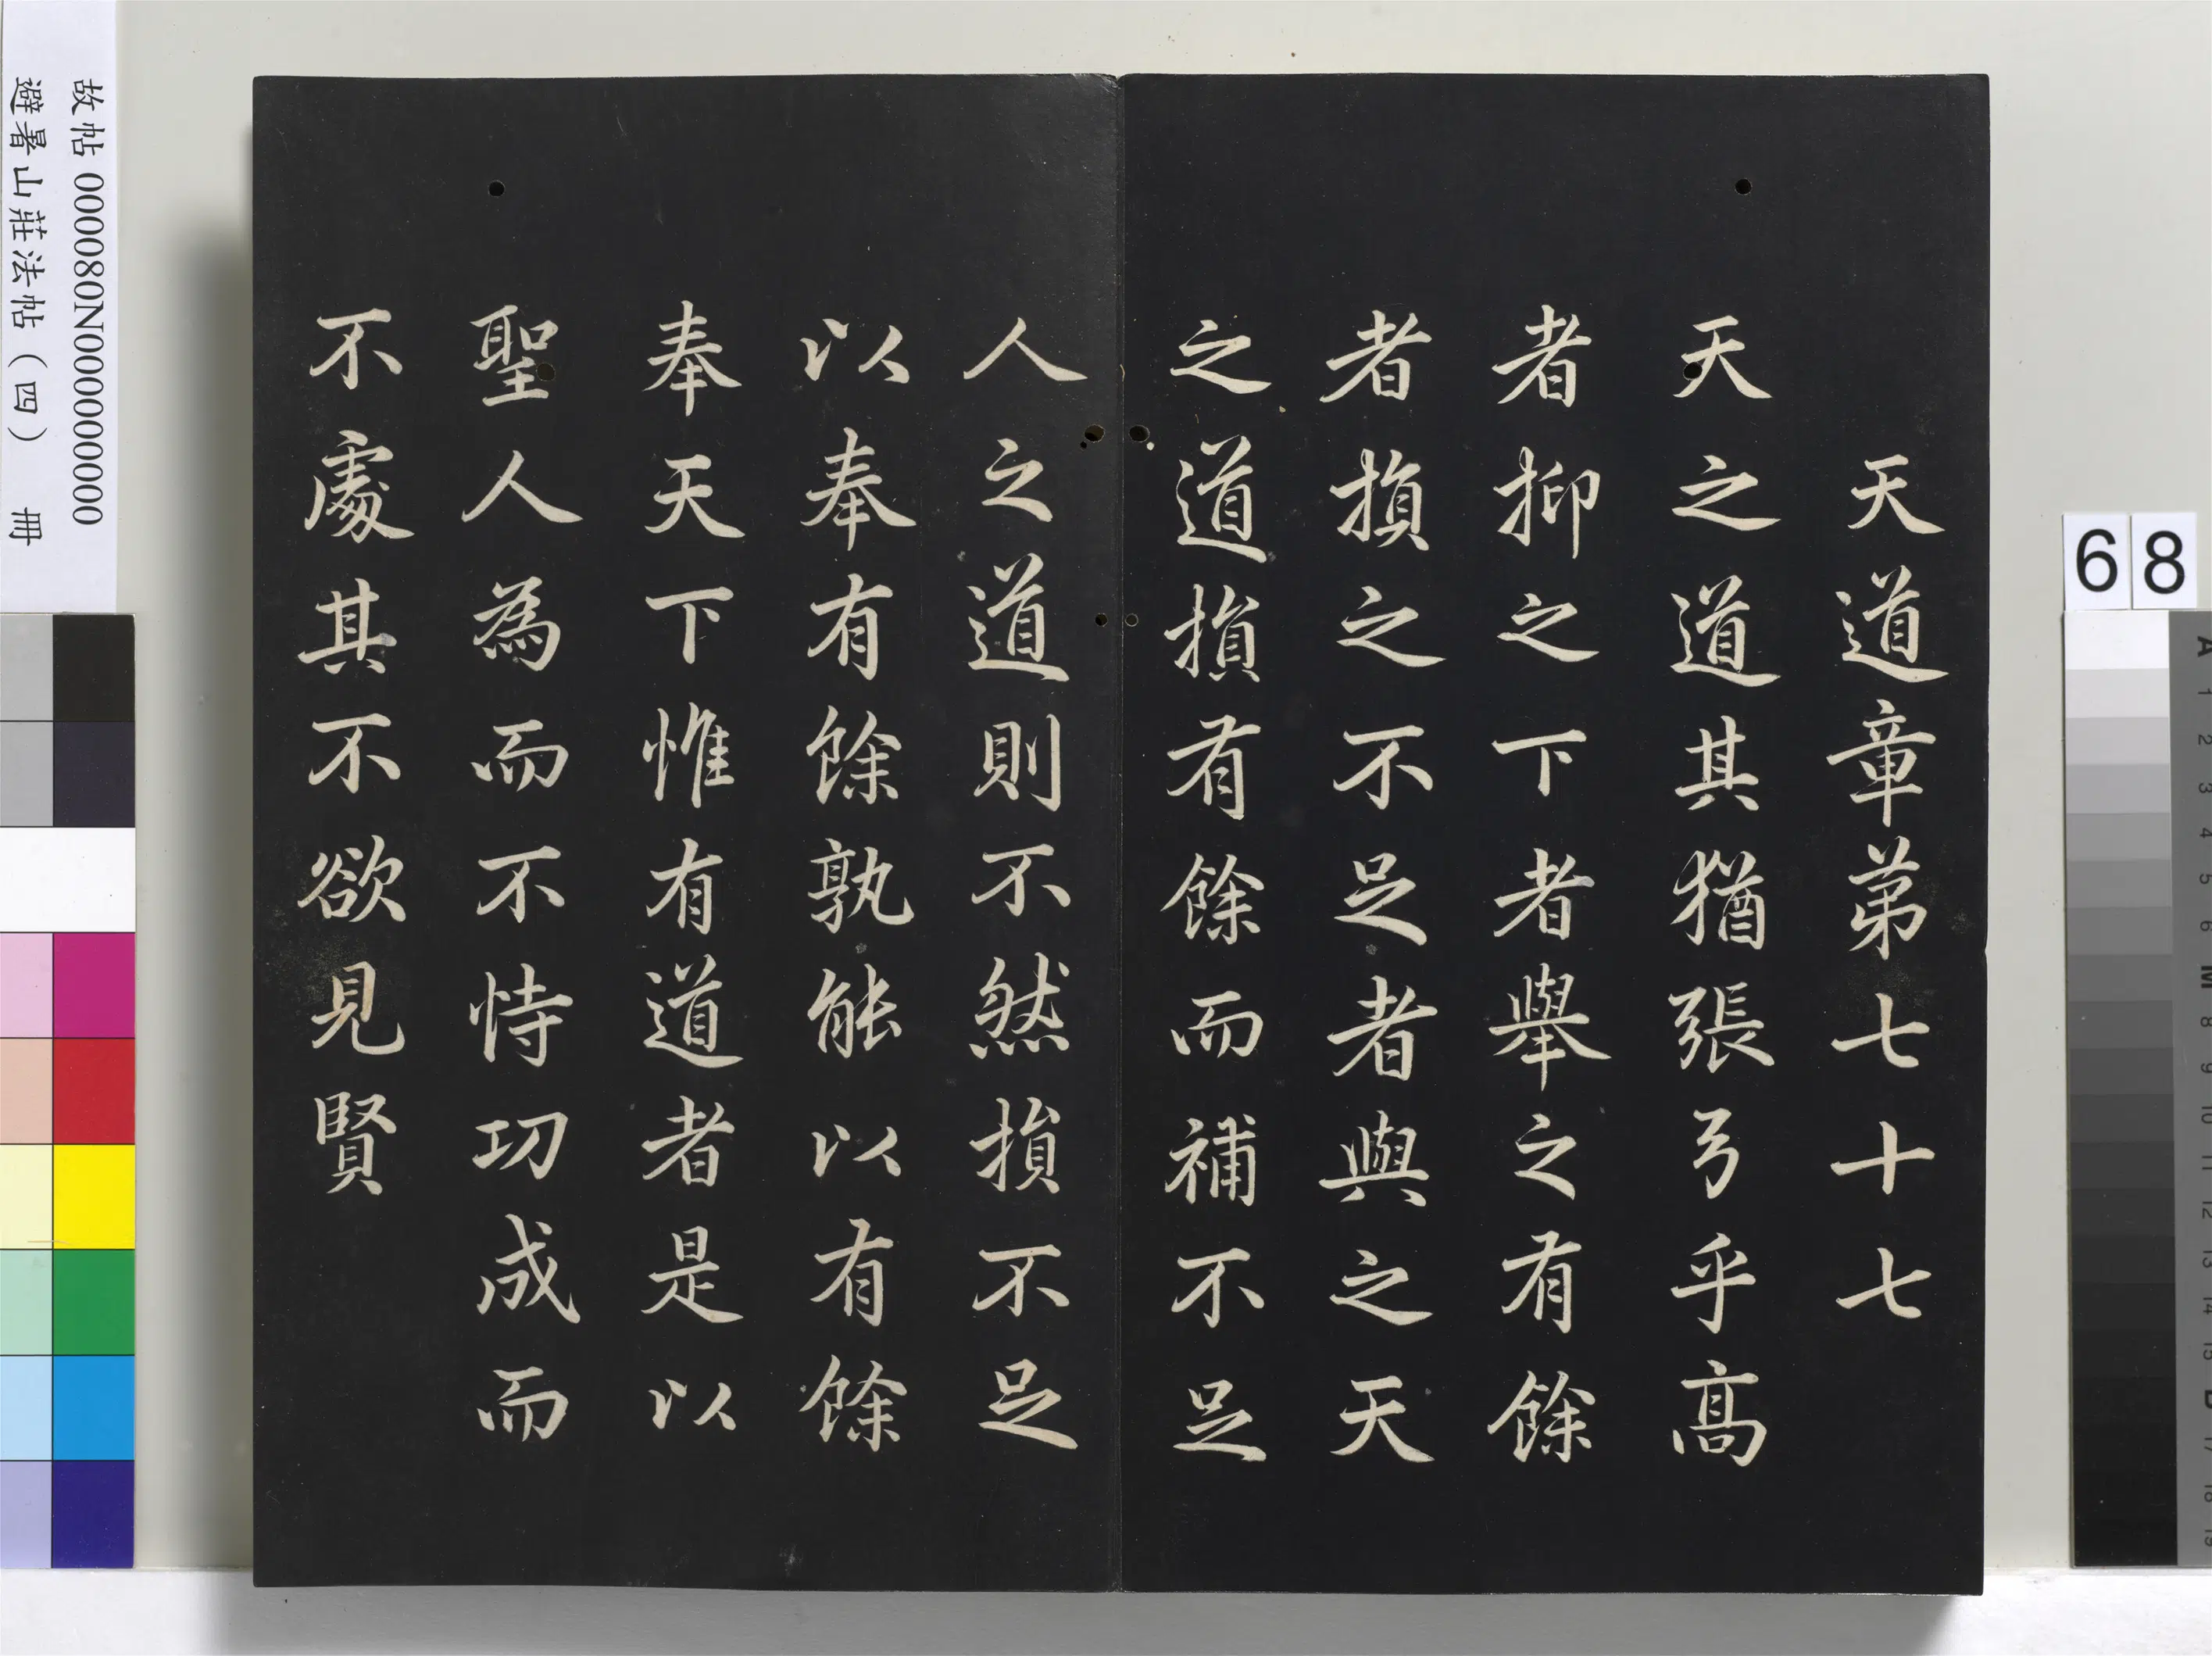 天道章弟七十七
天之道其猶張弓乎髙
者抑之下者舉之有餘
者損之不足者與之天
之道損有餘而補不足
人之道則不然損不足
以奉有餘孰能以有餘
奉天下惟有道者是以
聖人為而不恃功成而
不處其不欲見賢
故帖 000080N000000000
避暑山莊法帖（四） 冊
68